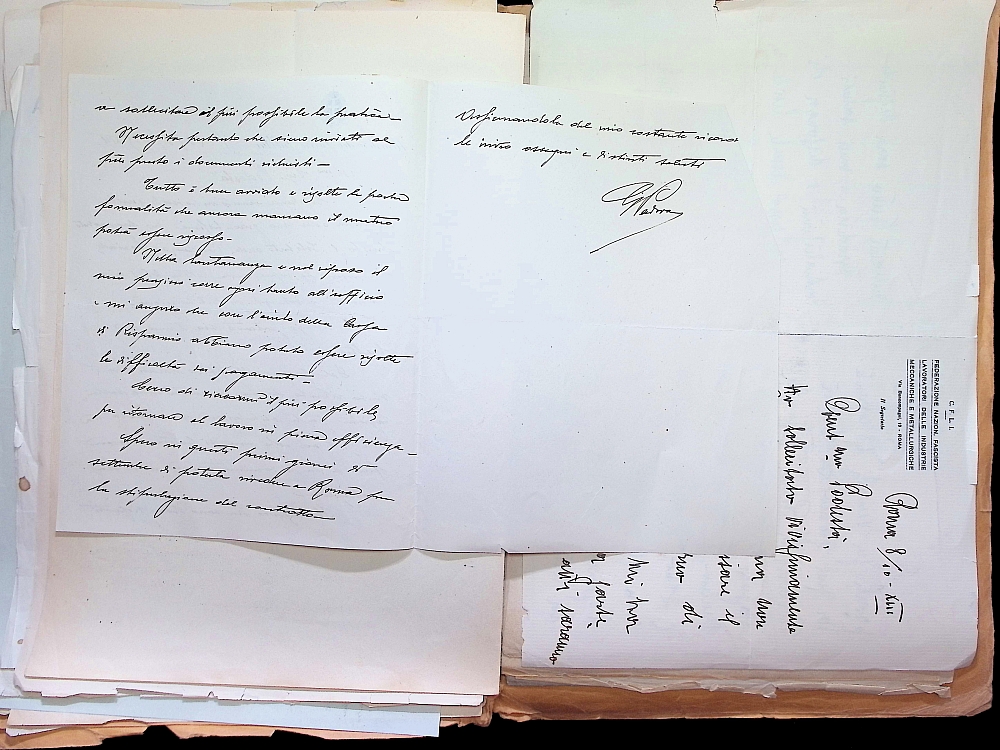 e sollecitare il più possibile la pratica -
Necessita pertanto che siano inviati al
più presto i documenti richiesti -
Tutto è bene avviato e risolte le poche
formalità che ancora mancano il mutuo
potrà essere riscosso -
Nella lontananza e nel riposo il
mio pensiero corre ogni tanto all'ufficio
e mi auguro che con l'aiuto della Cassa
di Risparmio abbiano potuto essere risolte
le difficoltà dei pagamenti -
Cerco di riavermi il più possibile
per ritornare al lavoro in piena efficienza -
Spero in questi primi giorni di
settembre di poterla rivedere a Roma per
la stipulazione del contratto
Assicurandola del mio costante ricordo
le invio ossequi e distinti saluti
C.F.L.I.
FEDERAZIONE NAZION. FASCISTA
LAVORATORI DELLE INDUSTRIE
MECCANICHE E METALLURGICHE
Via Boncompagni, 19 - ROMA
Il Segretario
Roma 8/10 - XIII
Gent.mo Podestà,
Ho sollecitato
il
di
Mi ha
parte
saranno